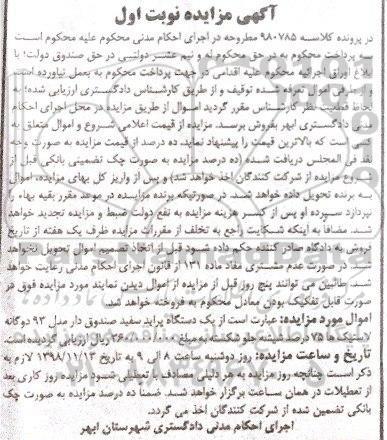 آگهی مزایده نوبت اول
در پرونده کلاسه ۹۸۰۷۸۵ مطروحه در اجرای احکام مدنی محکوم علیه محکوم است
به پرداخت محکوم به در حق محکوم له و نیم عشر دولتی در حق صندوق دولت؛ با
بلاغ اوراق اجرائیه محکوم علیه اقدامی در جهت پرداخت محکوم به بعمل نیاورده است
و از طرفی اموال تعرفه شده توقیف و از طریق کارشناس دادگستری ارزیابی شده؛ به
لحاظ قطعیت نظر کارشناس مقرر گردید اموال از طریق مزایده در محل اجرای احکام
مدنی دادگستری ابهر بفروش برسد. مزایده از قیمت اعلامی شروع و اموال متعلق به
کسی است که بالاترین قیمت را پیشنهاد نماید. ده درصد از قیمت مزایده به صورت وجه
نقد فی المجلس دریافت شده (ده درصد مزایده به صورت چک تضمینی بانکی قبل از
شروع مزایده از شرکت کنندگان اخذ خواهد شد) و پس از واریز کل بهای مزایده، اموال
به برنده تحویل داده خواهد شد. در صورتیکه برنده مزایده در موعد مقرر بقیه بهاء را
نپردازد سپرده او پس از کسر هزینه مزایده به نفع دولت ضبط و مزایده تجدید خواهد
شد. مضافا به اینکه شکایت راجع به تخلف از مقررات مزایده ظرف یک هفته از تاریخ
فروش به دادگاه صادر کننده حکم داده شود قبل از اتخاذ تصمیم اموال تحویل نخواهد
شد. در صورت عدم مشتری مفاد ماده ۱۳۱ از قانون اجرای احکام مدنی رعایت خواهد
شد. طالبین می توانند پنج روز قبل از مزایده از اموال دیدن نمایند مورد مزایده فوق در
صورت قابل تفکیک بودن معادل محکوم به فروخته خواهد شد.
اموال مورد مزایده: عبارت است از یک دستگاه پراید سفید صندوق دار مدل ۹۳ دوگانه
لاستیک ها ۷۵ درصد شیشه جلو شکسته به مبلغ ریال ارزیابی گردیده است.
تاریخ و ساعت مزایده: روز دوشنبه ساعت ۸ الی ۹ به تاریخ ۱۳۹۸/۱۱/۱۳ لازم به
ذکر است چنانچه روز مزایده به هر دلیلی مصادف با تعطیلی شود مزایده روز کاری بعد
از تعطیلات در همان ساعت برگزار خواهد شد. ضمنا ده درصد مزایده به صورت چک
بانکی تضمین شده از شرکت کنندگان اخذ می گردد.
اجرای احکام مدنی دادگستری شهرستان ابهر